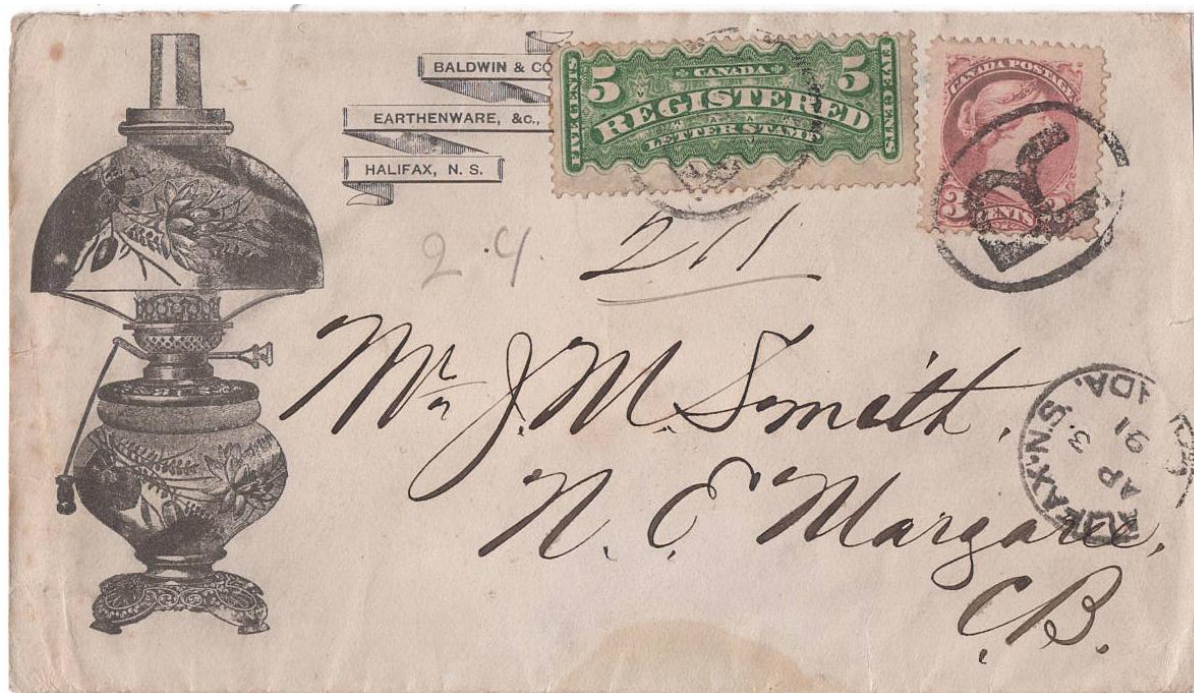 BALDWIN & CO
EARTHENWARE, &c.,
HALIFAX, N. S.
5 CANADA 5
FIVE CENTS
REGISTERED
LETTER STAMP
FIVE CENTS
CANADA POSTAGE
3 CENTS
R
2.4.
211
Mr J. M. Smith,
N. E. Margaree,
C.B.
HALIFAX·N.S
AP 3
91